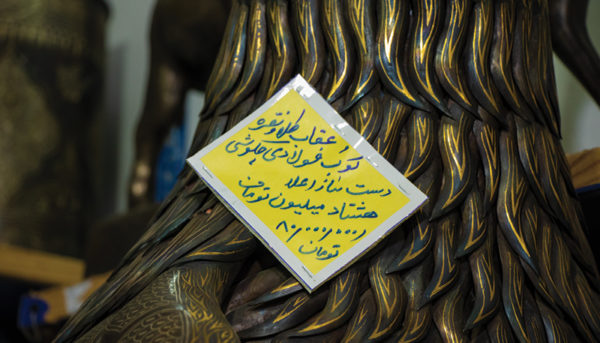 عقاب طلا و نقره
کوب فولادی
دست ساز اعلا
هشتاد میلیون تومان
۸۰/۰۰۰/۰۰۰
تومان